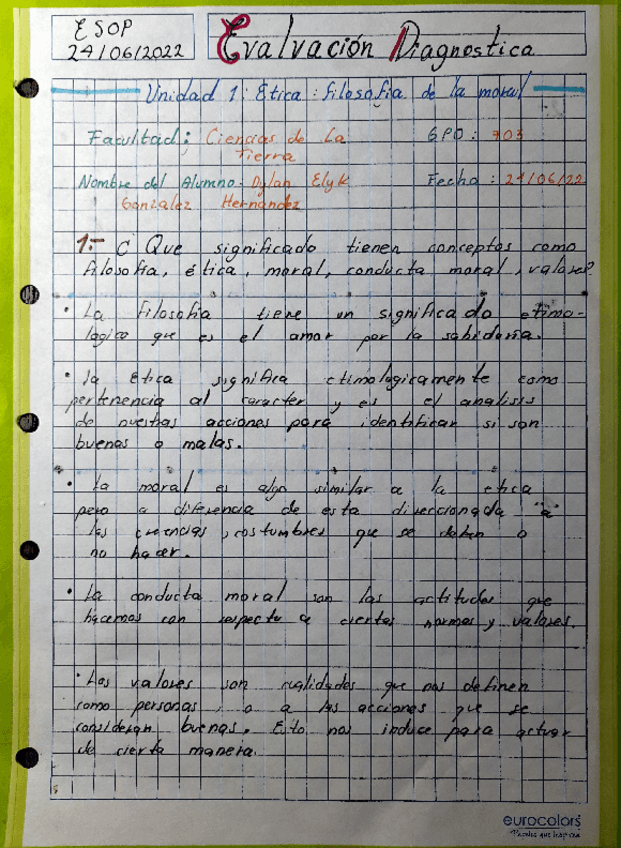 ESOP
24/06/2022
Evalvación Diagnostica
Unidad 1: Ética: filosofía de la moral
Facultad: Ciencias de La
Tierra
GPO: 703
Nombre del Alumno: Dylan Elyk
Gonzalez Hernandez
Fecha: 24/06/22
1.- ¿Que significado tienen conceptos como
filosofía, ética, moral, conducta moral, valores?
• La filosofía tiene un significado etimo-
lógico que es el amor por la sabiduría.
• la ética significa etimologicamente como
pertenencia al caracter y es el analisis
de nuestras acciones para identificar si son
buenas o malas.
• la moral es algo similar a la ética
pero a diferencia de esta direccionada "a"
las creencias, costumbres que se deben o
no hacer.
• La conducta moral son las actitudes que
hacemos con respecto a ciertas normas y valores.
• Los valores son cualidades que nos definen
como personas, o a las acciones que se
consideran buenas. Esto nos induce para actuar
de cierta manera.
eurocolors